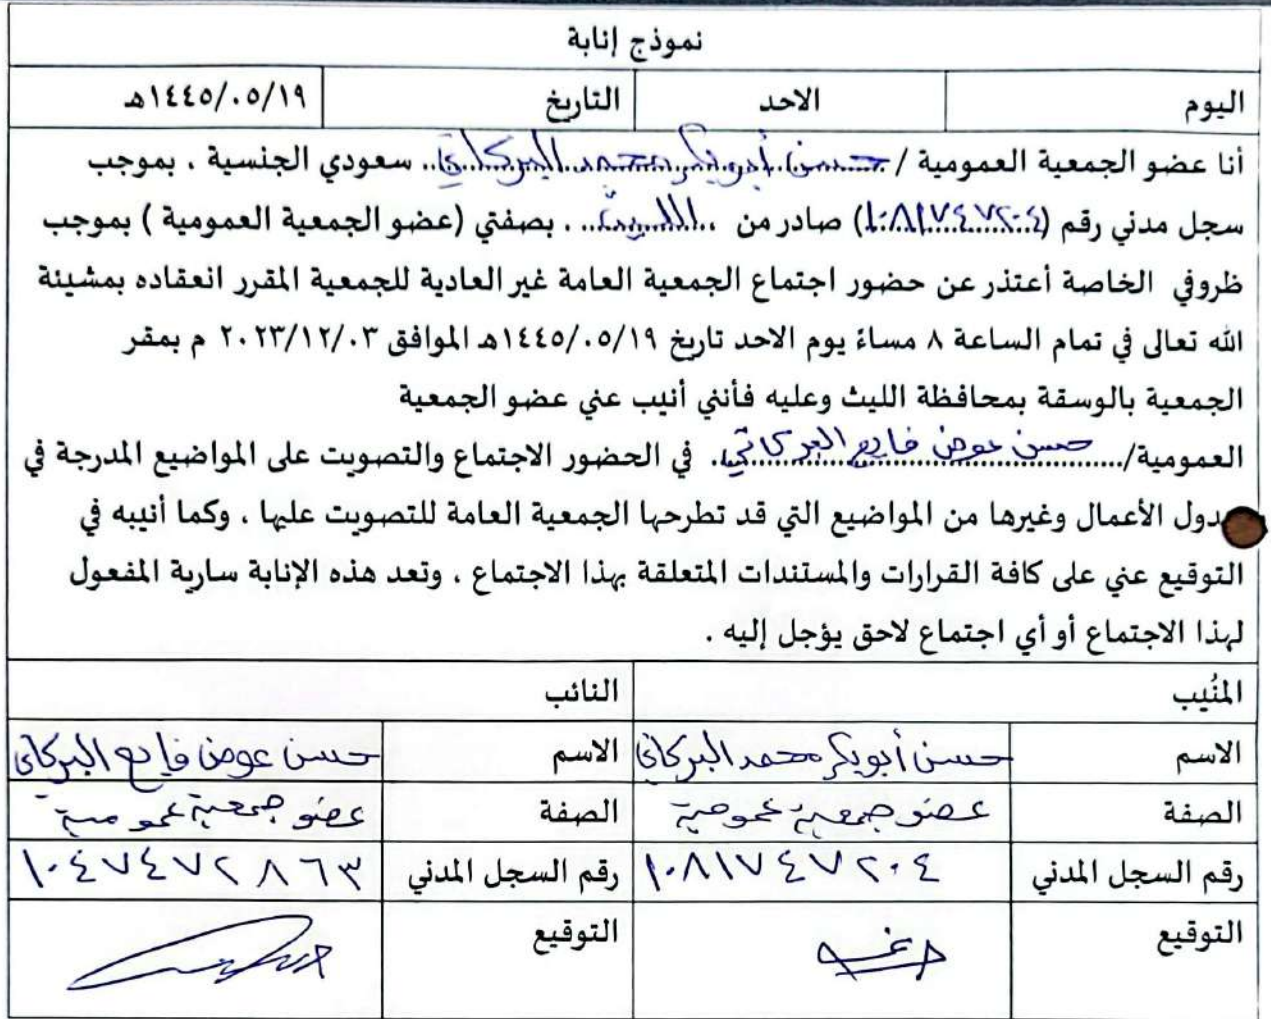 نموذج إنابة
اليوم الاحد التاريخ ١٤٤٥/٠٥/١٩هـ
أنا عضو الجمعية العمومية / حسن أبوبكر محمد البركاتي سعودي الجنسية ، بموجب
سجل مدني رقم (١٠٨١٧٤٧٢٠٤) صادر من الليث ، بصفتي (عضو الجمعية العمومية ) بموجب
ظروفي الخاصة أعتذر عن حضور اجتماع الجمعية العامة غير العادية للجمعية المقرر انعقاده بمشيئة
الله تعالى في تمام الساعة ٨ مساءً يوم الاحد تاريخ ١٤٤٥/٠٥/١٩هـ الموافق ٢٠٢٣/١٢/٠٣ م بمقر
الجمعية بالوسقة بمحافظة الليث وعليه فأنني أنيب عني عضو الجمعية
العمومية/ حسن عوض فايع البركاتي في الحضور الاجتماع والتصويت على المواضيع المدرجة في
جدول الأعمال وغيرها من المواضيع التي قد تطرحها الجمعية العامة للتصويت عليها ، وكما أنيبه في
التوقيع عني على كافة القرارات والمستندات المتعلقة بهذا الاجتماع ، وتعد هذه الإنابة سارية المفعول
لهذا الاجتماع أو أي اجتماع لاحق يؤجل إليه .
المُنيب النائب
الاسم حسن أبوبكر محمد البركاتي الاسم حسن عوض فايع البركاتي
الصفة عضو جمعية عمومية الصفة عضو جمعية عمومية
رقم السجل المدني ١٠٨١٧٤٧٢٠٤ رقم السجل المدني ١٠٤٧٤٧٢٨٦٣
التوقيع التوقيع